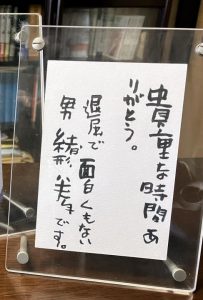 貴重な時間あ
りがとう。
退屈で面白くもない
男 緒形拳です。